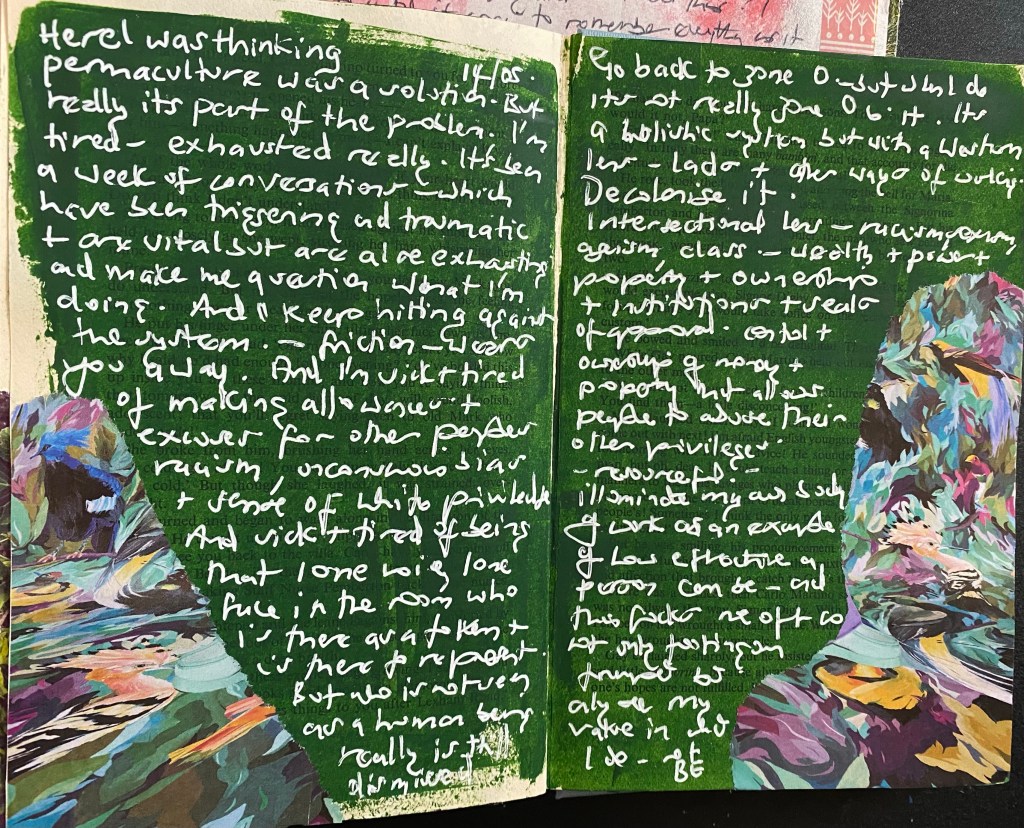 to remember everything as it
Here I was thinking
permaculture was a solution. But
14/05.
really its part of the problem. I'm
tired - exhausted really. It's been
a week of conversations - which
have been triggering and traumatic
+ are vital but are also exhausting
and make me question what I'm
doing. And I keep hitting against
the system. - friction - wears
you away. And I'm sick + tired
of making allowances +
excuses for other peoples
racism unconscious bias
+ sense of white priviledge
And sick + tired of being
that lone voice lone
face in the room who
is there as a token +
is there to represent.
But who is not seen
as a human being
really is still
dismissed
Go back to zone 0 - but
Its not really zone 0 is it. Its
a holistic system but with a western
lens - + other ways of working.
Decolonise it.
Intersectional lens - racism sexism
ageism class - wealth + power +
property + ownership
+ institutions + seals
of approval. control +
ownership of money +
property that allows
people to abuse their
other privilege
- resourceful -
illuminate my own body
of work as an example
of how effective a
person can be and
this fucks me off so
not only footing on
but
also my
value in
I do - BE
BE